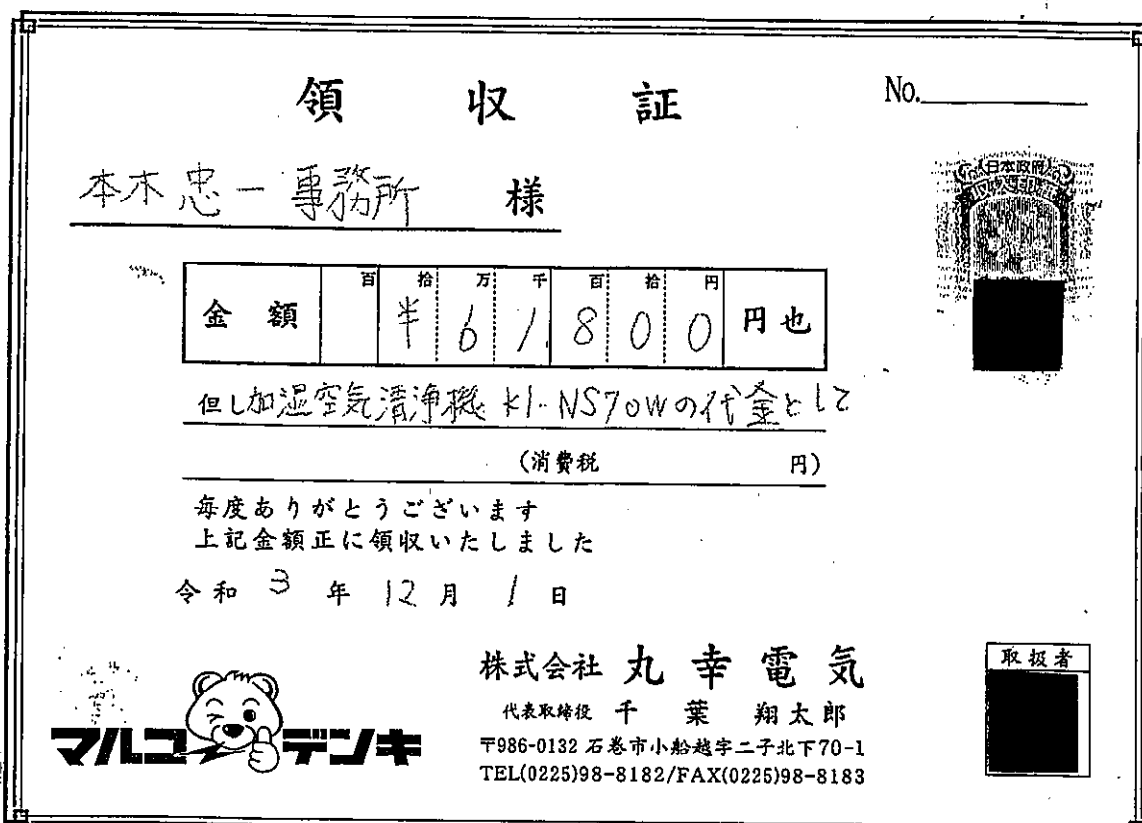 領収証
No.
本木忠一事務所 様
日本政府
金額 百 拾 万 千 百 拾 円 円也
¥61,800
但し加湿空気清浄機 KI-NS70Wの代金として
(消費税 円)
毎度ありがとうございます
上記金額正に領収いたしました
令和 3 年 12 月 1 日
株式会社 丸幸電気
代表取締役 千葉 翔太郎
〒986-0132 石巻市小船越字二子北下70-1
TEL(0225)98-8182/FAX(0225)98-8183
マルコーデンキ
取扱者